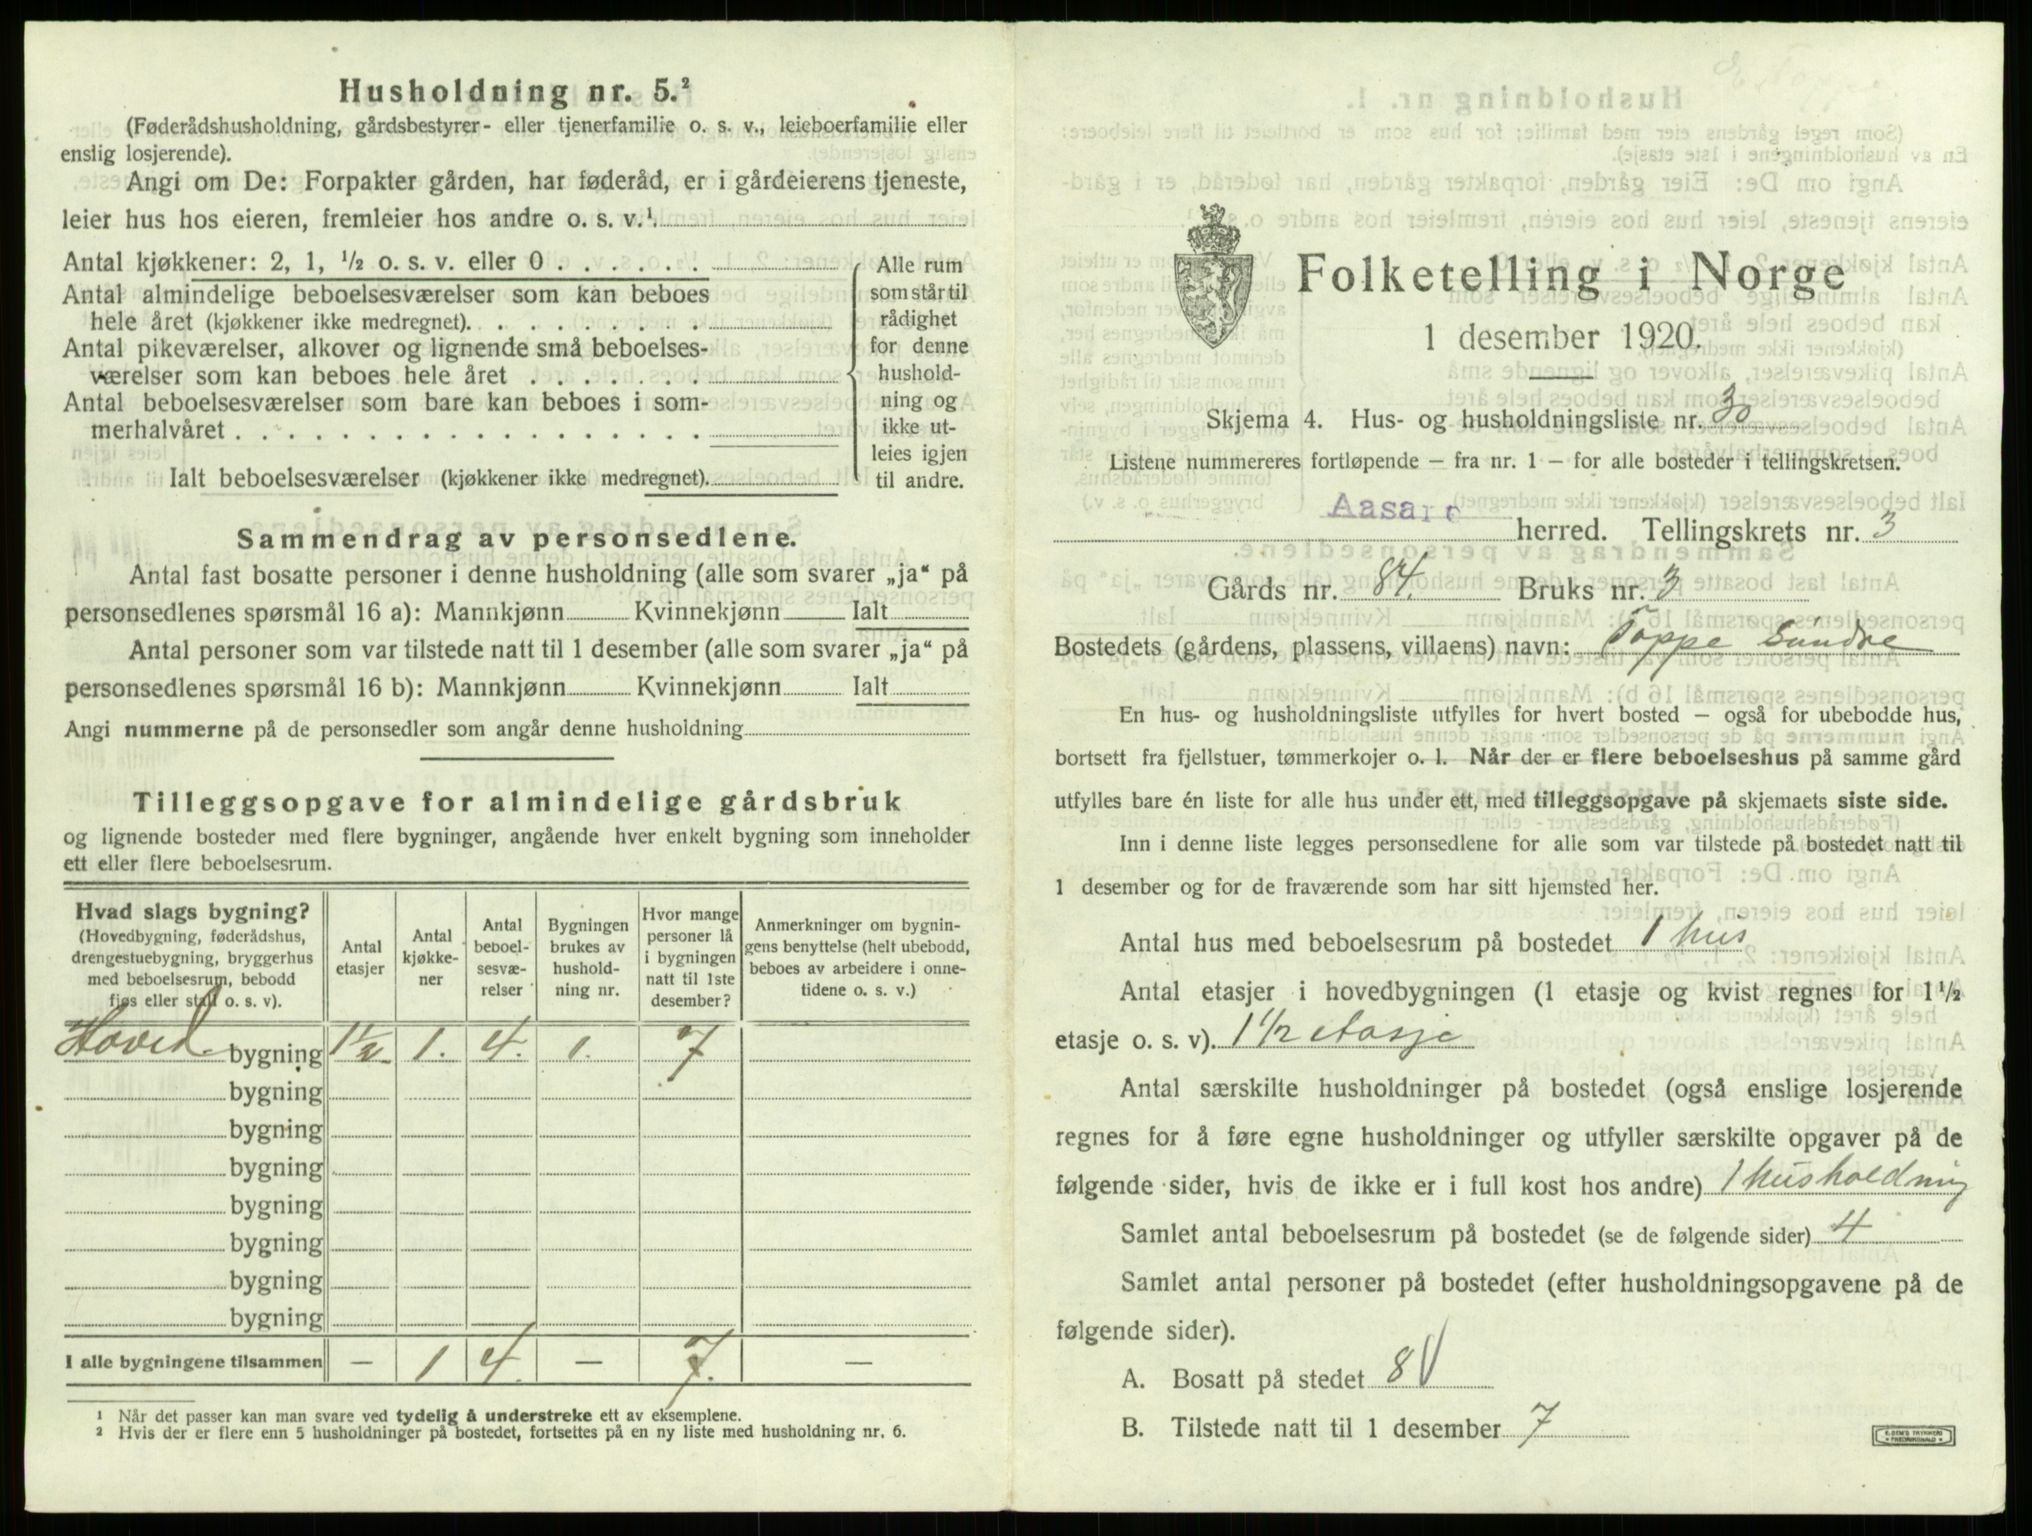 Husholdning nr. 5.²
(Føderådshusholdning, gårdsbestyrer- eller tjenerfamilie o. s. v., leieboerfamilie eller
enslig losjerende).
Angi om De: Forpakter gården, har føderåd, er i gårdeierens tjeneste,
leier hus hos eieren, fremleier hos andre o. s. v.¹
Antal kjøkkener: 2, 1, ½ o. s. v. eller 0 . . . . . .
Antal almindelige beboelsesværelser som kan beboes
hele året (kjøkkener ikke medregnet). . . . . . . . .
Antal pikeværelser, alkover og lignende små beboelses-
værelser som kan beboes hele året . . . . . . .
Antal beboelsesværelser som bare kan beboes i som-
merhalvåret . . . . . . . . . . . . . . . . . .
Ialt beboelsesværelser (kjøkkener ikke medregnet).
Alle rum
som står til
rådighet
for denne
hushold-
ning og
ikke ut-
leies igjen
til andre.
Sammendrag av personsedlene.
Antal fast bosatte personer i denne husholdning (alle som svarer „ja“ på
personsedlenes spørsmål 16 a): Mannkjønn Kvinnekjønn Ialt
Antal personer som var tilstede natt til 1 desember (alle som svarer „ja“ på
personsedlenes spørsmål 16 b): Mannkjønn Kvinnekjønn Ialt
Angi nummerne på de personsedler som angår denne husholdning
Tilleggsopgave for almindelige gårdsbruk
og lignende bosteder med flere bygninger, angående hver enkelt bygning som inneholder
ett eller flere beboelsesrum.
Hvad slags bygning?
(Hovedbygning, føderådshus,
drengestuebygning, bryggerhus
med beboelsesrum, bebodd
fjøs eller stall o. s. v).
Antal
etasjer
Antal
kjøkke-
ner
Antal
beboel-
sesvæ-
relser
Bygningen
brukes av
hushold-
ning nr.
Hvor mange
personer lå
i bygningen
natt til 1ste
desember?
Anmerkninger om bygnin-
gens benyttelse (helt ubebodd,
beboes av arbeidere i onne-
tidene o. s. v.)
Hoved bygning 1½ 1. 4. 1. 7
bygning
bygning
bygning
bygning
bygning
bygning
bygning
I alle bygningene tilsammen — 1 4. — 7. —
¹ Når det passer kan man svare ved tydelig å understreke ett av eksemplene.
² Hvis der er flere enn 5 husholdninger på bostedet, fortsettes på en ny liste med husholdning nr. 6.
Folketelling i Norge
1 desember 1920.
Skjema 4. Hus- og husholdningsliste nr. 30
Listene nummereres fortløpende – fra nr. 1 – for alle bosteder i tellingskretsen.
Aasane herred. Tellingskrets nr. 3
Gårds nr. 84. Bruks nr. 3
Bostedets (gårdens, plassens, villaens) navn: Toppe Søndre
En hus- og husholdningsliste utfylles for hvert bosted – også for ubebodde hus,
bortsett fra fjellstuer, tømmerkojer o. l. Når der er flere beboelseshus på samme gård
utfylles bare én liste for alle hus under ett, med tilleggsopgave på skjemaets siste side.
Inn i denne liste legges personsedlene for alle som var tilstede på bostedet natt til
1 desember og for de fraværende som har sitt hjemsted her.
Antal hus med beboelsesrum på bostedet 1 hus
Antal etasjer i hovedbygningen (1 etasje og kvist regnes for 1½
etasje o. s. v). 1 1/2 etasje
Antal særskilte husholdninger på bostedet (også enslige losjerende
regnes for å føre egne husholdninger og utfyller særskilte opgaver på de
følgende sider, hvis de ikke er i full kost hos andre) 1 husholdning
Samlet antal beboelsesrum på bostedet (se de følgende sider) 4
Samlet antal personer på bostedet (efter husholdningsopgavene på de
følgende sider).
A. Bosatt på stedet 8 V
B. Tilstede natt til 1 desember 7